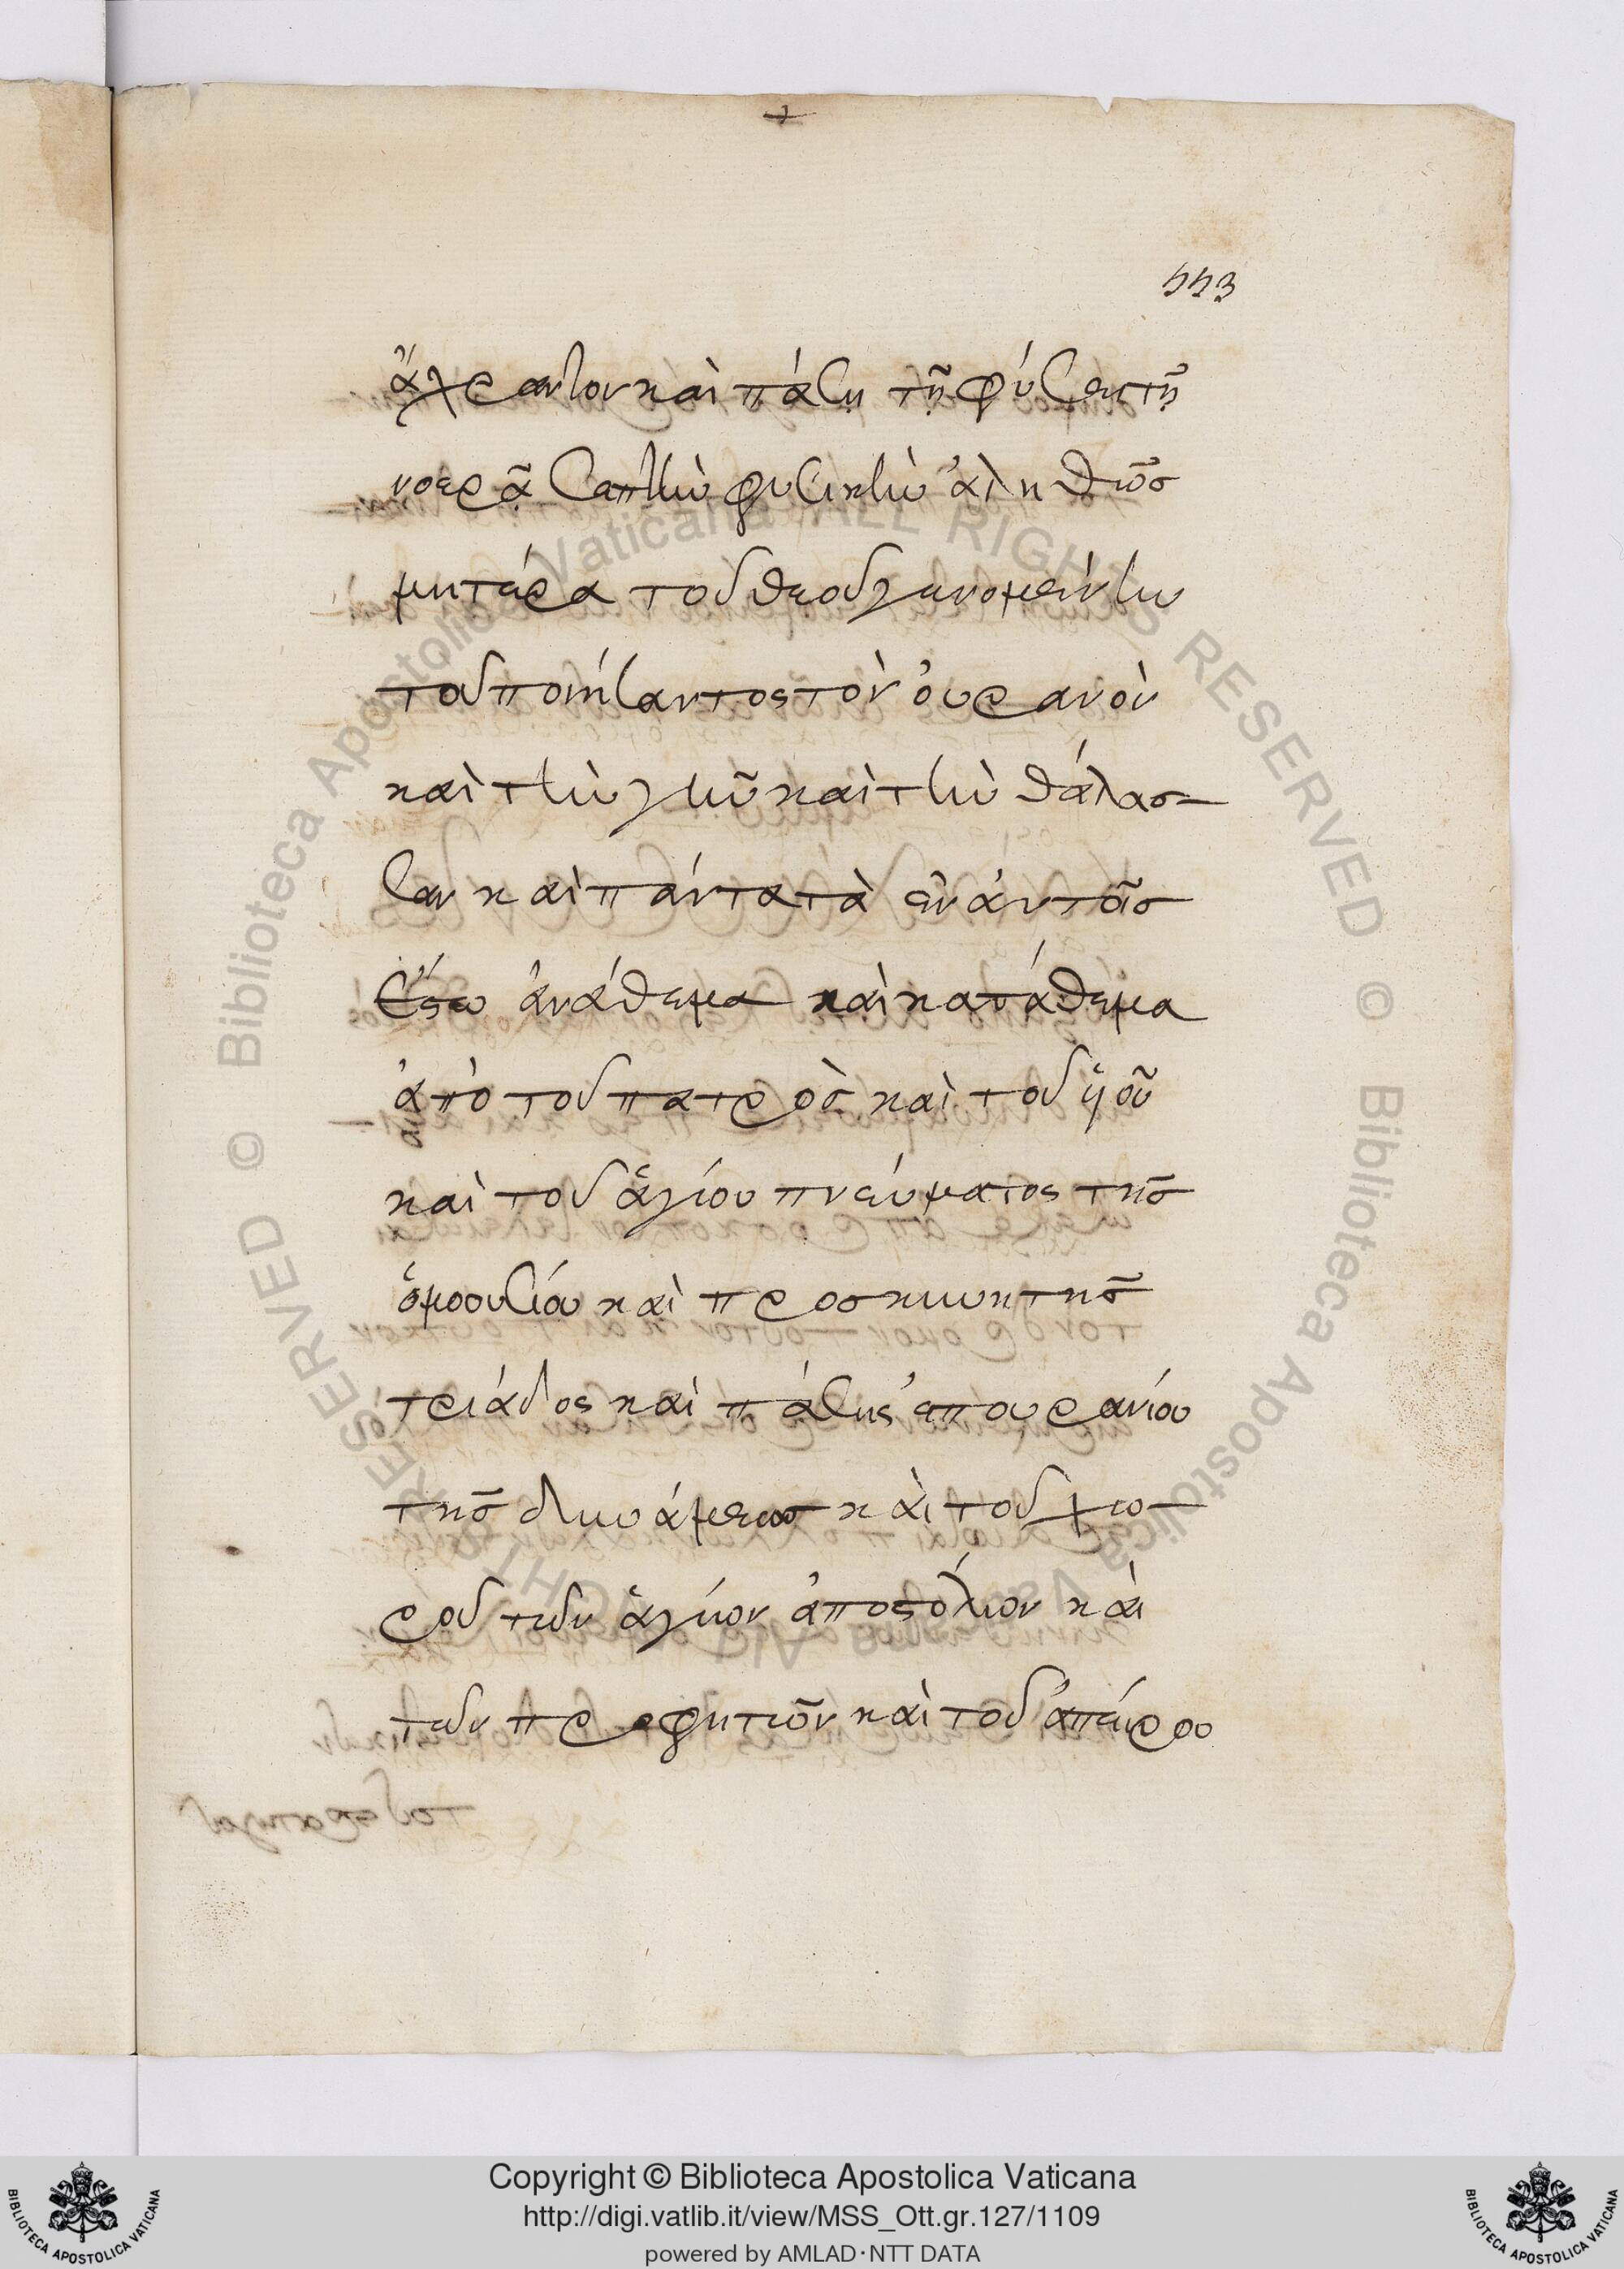 553
ἄχραντον καὶ πάσῃ τῇ φύσει τῇ
νοερᾷ σεπτὴν φυσικὴν ἀληθῶς
μητέρα τοῦ θεοῦ γενομένην
τοῦ ποιήσαντος τὸν ὀυρανὸν
καὶ τὴν γῆν καὶ τὴν θάλασ-
σαν καὶ πάντα τὰ ἐν ἀυτοῖς
ἔστω ἀνάθεμα καὶ κατάθεμα
ἀπὸ τοῦ πατρὸς καὶ τοῦ ὑιοῦ
καὶ τοῦ ἁγίου πνεύματος τῆς
ὁμοουσίου καὶ προσκυνητῆς
τριάδος καὶ πάσης ἐπουρανίου
τῆς δυνάμεως καὶ τοῦ χω-
ροῦ τῶν ἁγίων ἀποστόλων καὶ
τῶν προφητῶν καὶ τοῦ ἀπείρου
Copyright © Biblioteca Apostolica Vaticana
http://digi.vatlib.it/view/MSS_Ott.gr.127/1109
powered by AMLAD·NTT DATA
BIBLIOTECA APOSTOLICA VATICANA
BIBLIOTECA APOSTOLICA VATICANA
© Biblioteca Apostolica Vaticana ALL RIGHTS RESERVED
© Biblioteca Apostolica Vaticana ALL RIGHTS RESERVED